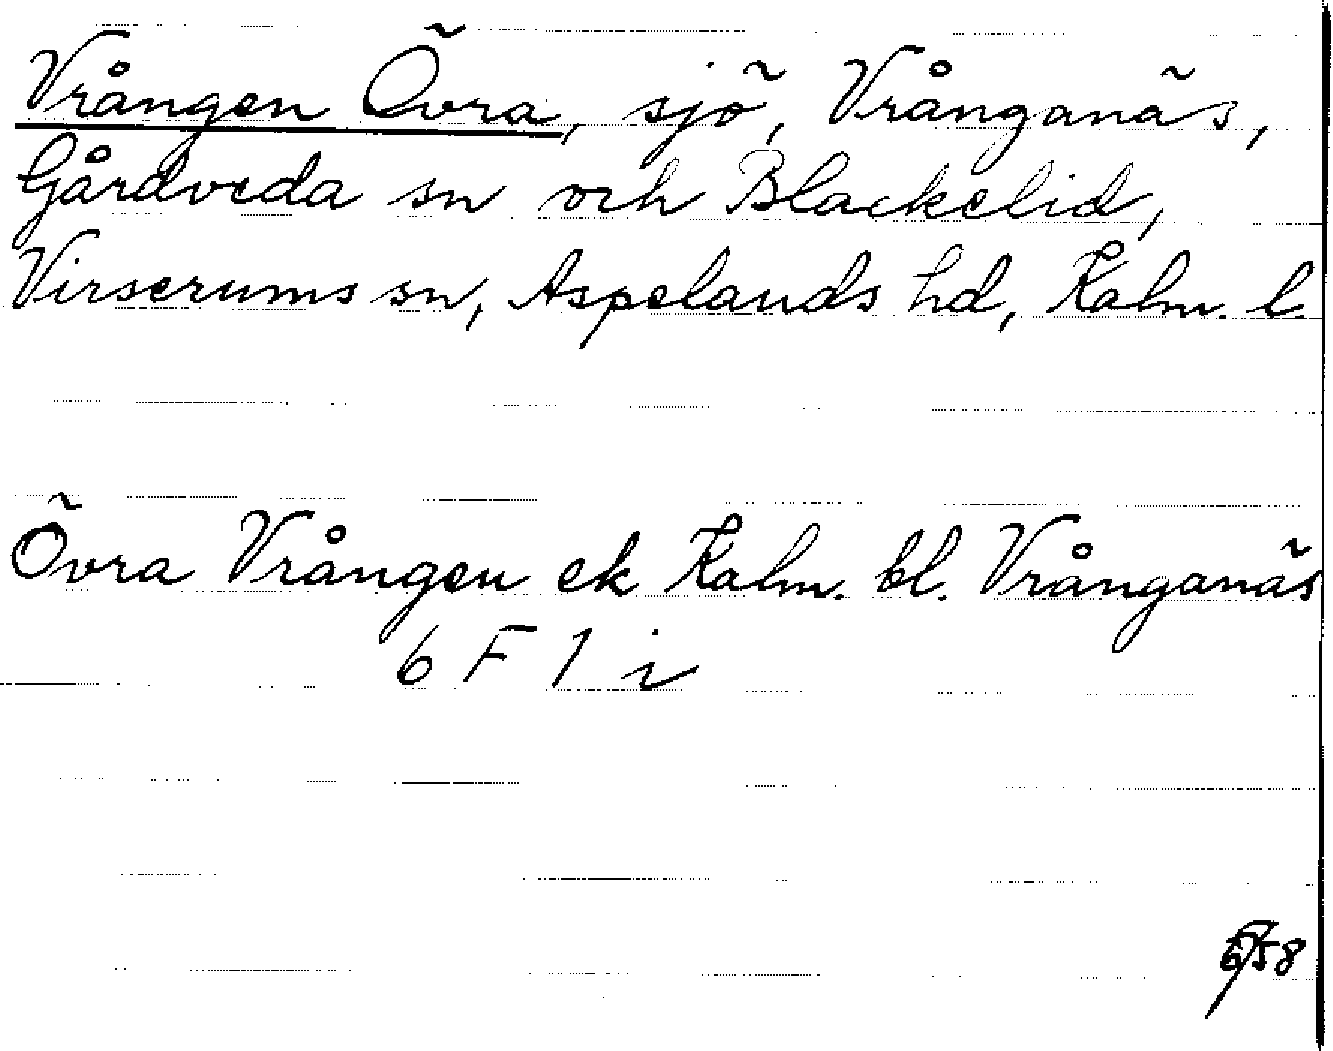 Vrången Övra, sjö, Vrånganäs,
Gårdveda sn och Blackelid,
Virserums sn, Aspelands hd, Kalm. l.
Övra Vrången ek Kalm. bl. Vrånganäs
6 F 1 i